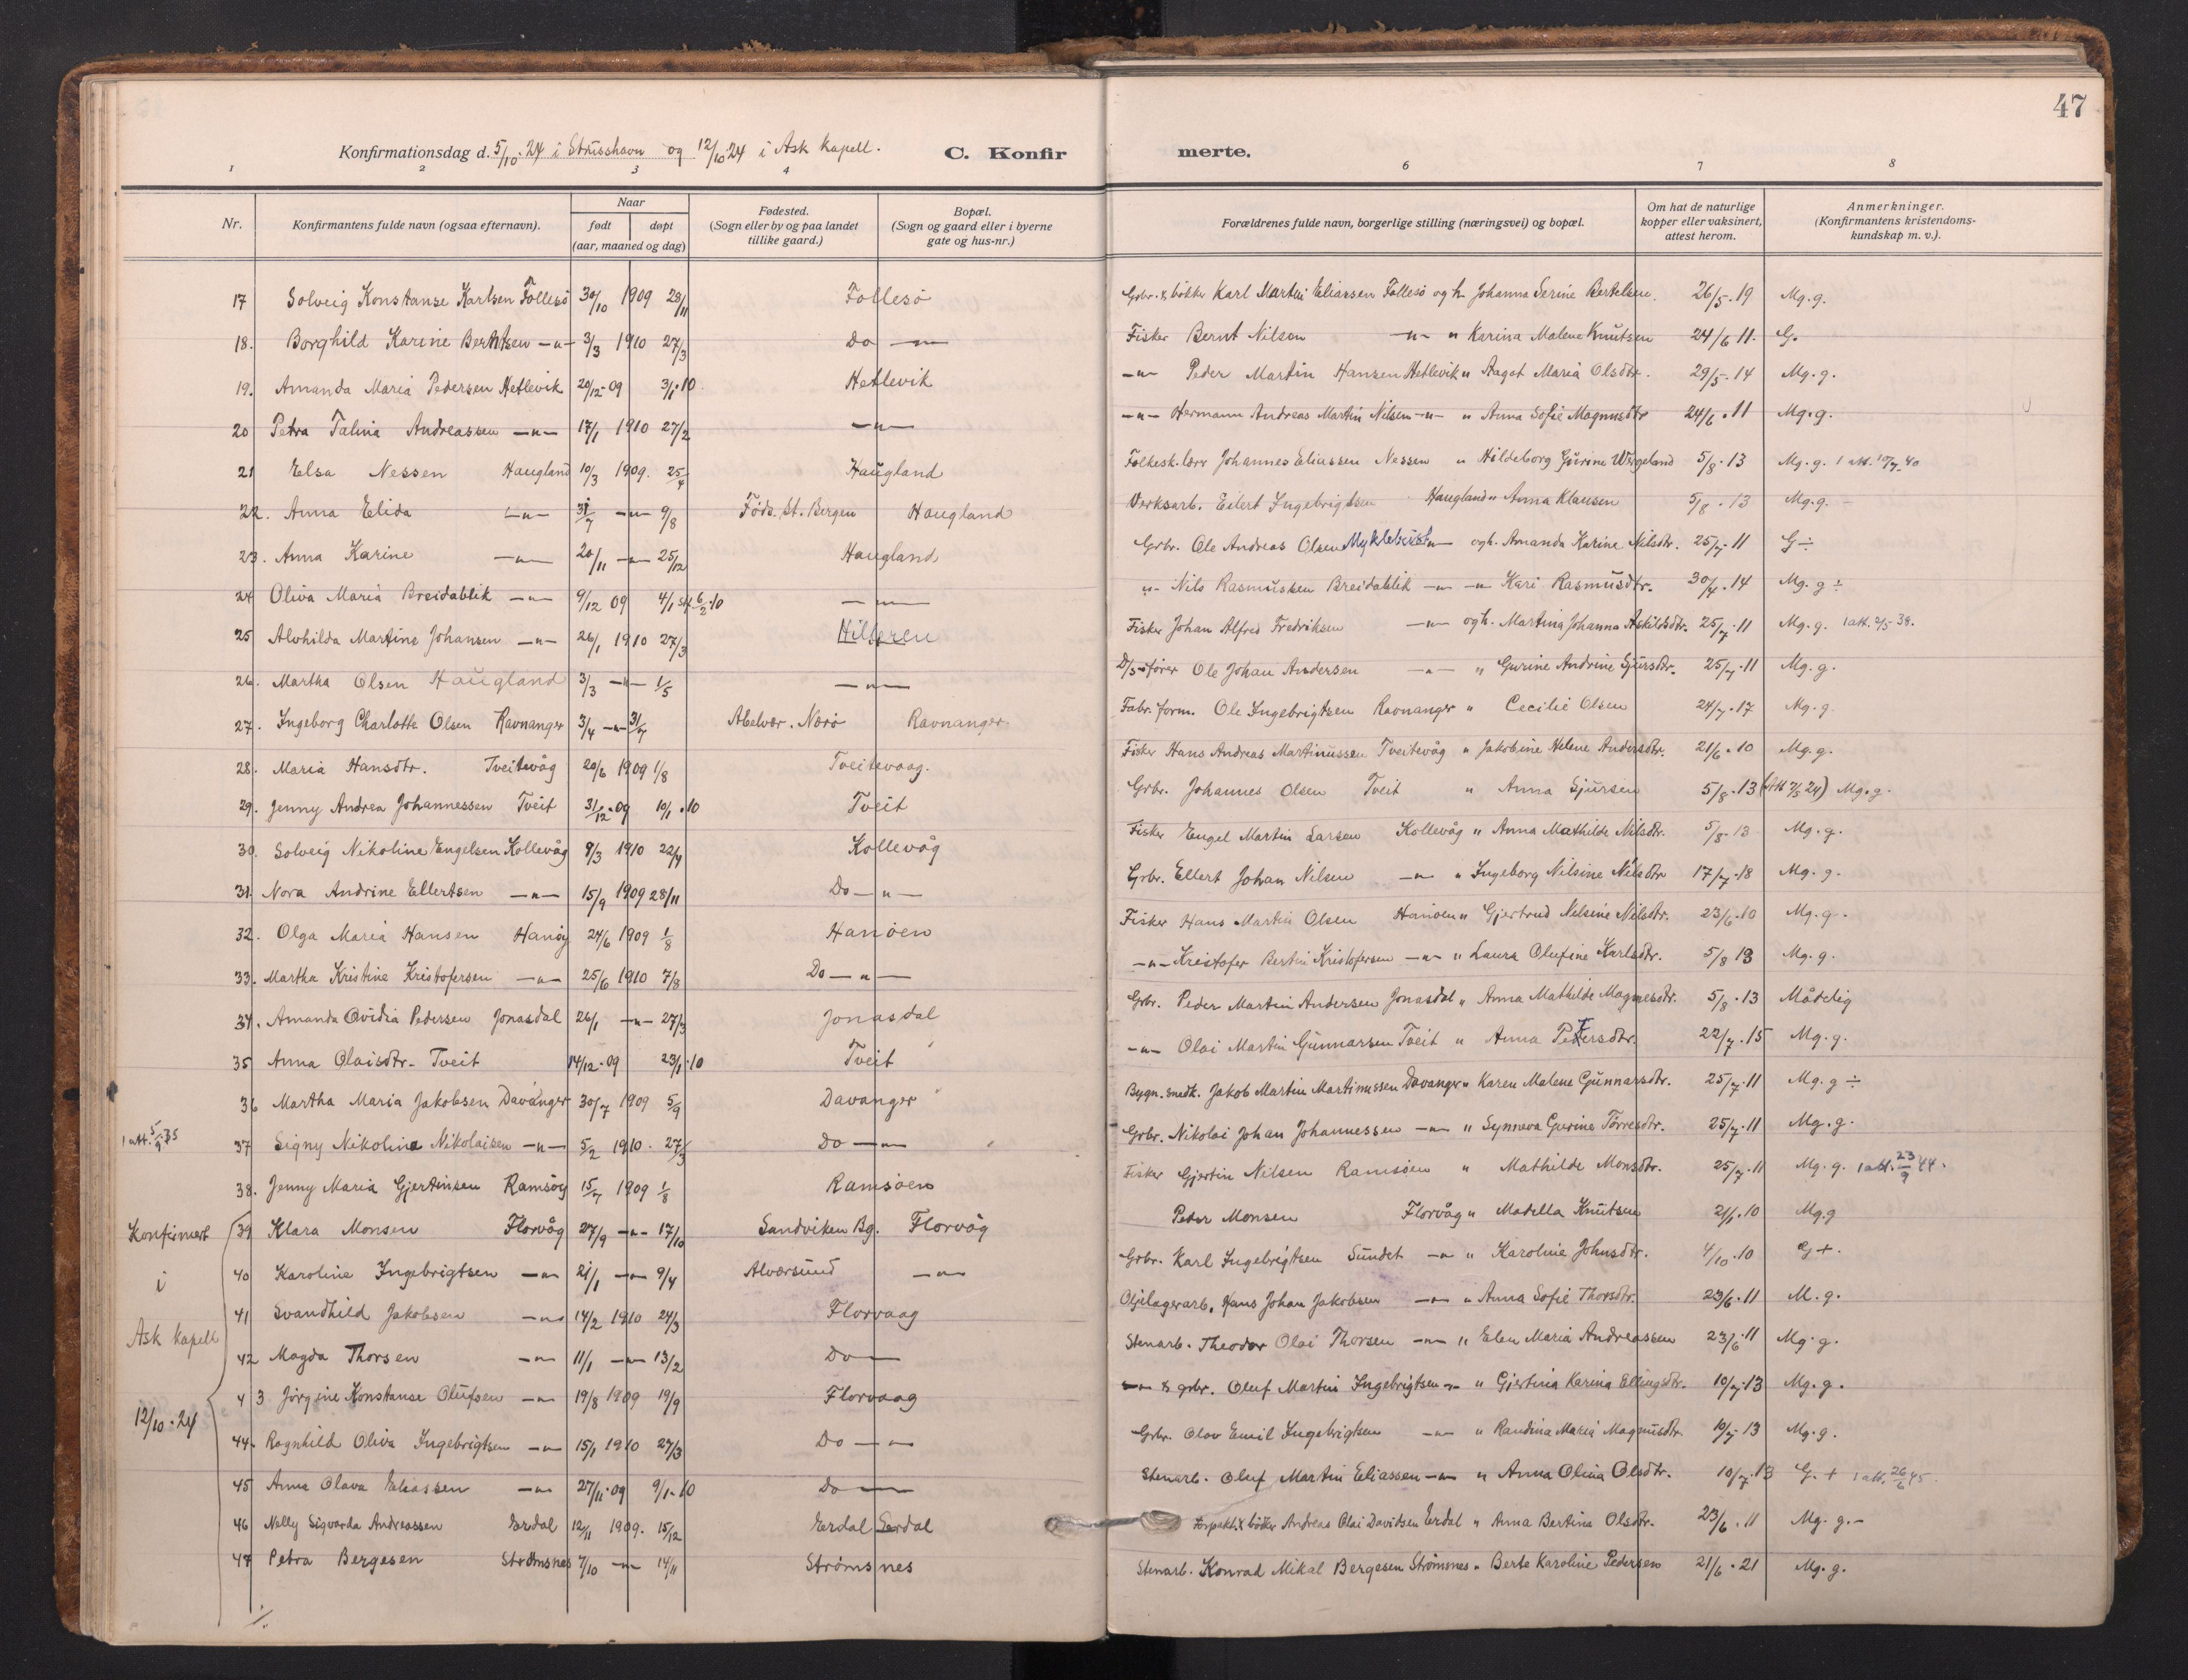 47
Konfirmationsdag d. 5/10·24 i Strusshavn og 12/10·24 i Ask kapell.
C. Konfirmerte.
1 2 3 4 6 7 8
Nr.
Konfirmantens fulde navn (ogsaa efternavn).
Naar
født
døpt
(aar, maaned og dag)
Fødested.
(Sogn eller by og paa landet
tillike gaard.)
Bopæl.
(Sogn og gaard eller i byerne
gate og hus-nr.)
Forældrenes fulde navn, borgerlige stilling (næringsvei) og bopæl.
Om hat de naturlige
kopper eller vaksinert,
attest herom.
Anmerkninger.
(Konfirmantens kristendoms-
kundskap m. v.).
17 Solveig Konstanse Karlsen Follesö 30/10 1909 28/11 Follesö Grbr. & bökker Karl Martin Eliassen Follesö og h. Johanna Serine Bertelsen. 26/5·19 Mg. g.
18. Borghild Karine Berntsen —"— 3/3 1910 27/3 Do —"— Fisker Bernt Nilsen —"— " Karina Malene Knutsen 24/6 11. G.
19. Amanda Maria Pedersen Hetlevik 20/12·09 3/1·10 Hetlevik —"— Peder Martin Hansen Hetlevik " Aagot Maria Olsdtr. 29/5·14 Mg. g.
20 Petra Talina Andreassen —"— 17/1 1910 27/2 —"— —"— Hermann Andreas Martin Nilsen —"— " Anna Sofie Magnusdtr 24/6·11 Mg. g.
21 Elsa Nessen Haugland 10/3 1909. 25/4 Haugland Folkesk.lærer Johannes Eliassen Nessen " Hildeborg Gurine Wergeland 5/8·13 Mg. g. 1 att. 10/7·40
22. Anna Elida —"— 31/7 —"— 9/8 Föds. st. Bergen Haugland Verksarb. Eilert Ingebrigtsen Haugland " Anna Klausen 5/8·13 Mg. g. –
23. Anna Karine —"— 20/11 —"— 25/12 Haugland Grbr. Ole Andreas Olsen Myklebust —"— og h. Amanda Karine Nilsdtr. 25/7·11 G ÷
24 Oliva Maria Breidablik —"— 9/12 09 4/1 st. 6/2·10 —"— "- Nils Rasmussen Breidablik —"— —"— Kari Rasmusdtr. 30/4·14 Mg. g ÷
25 Alvhilda Martine Johansen —"— 26/1 1910 27/3 Hilleren Fisker Johan Alfred Fredriksen —"— og h. Martina Johanna Askildsdtr. 25/7·11 Mg. g. 1 att. 2/5 38.
26. Martha Olsen Haugland 3/3 —"— 1/5 —"— D/s-förer Ole Johan Andersen —"— " Gurine Andrine Sjursdtr. 25/7·11 Mg. g.
27. Ingeborg Charlotte Olsen Ravnanger 3/4 —"— 31/7 Abelvær. Nærö Ravnanger. Fabr.form. Ole Ingebrigtsen Ravnanger " Cecilie Olsen 24/7·17 Mg. g.
28. Maria Hansdtr. Tveitevåg 20/6 1909 1/8 Tveitevaag. Fisker Hans Andreas Martinussen Tveitevåg " Jakobine Helene Andersdtr. 21/6·10 Mg. g.
29. Jenny Andrea Johannessen Tveit 31/12·09 10/1·10 Tveit Grbr. Johannes Olsen Tveit " Anna Sjursen 5/8·13 Mg. g.
30. Solveig Nikoline Engelsen Kollevåg 9/3 1910 22/4 Kollevåg Fisker Engel Martin Larsen Kollevåg " Anna Mathilde Nilsdtr. 5/8·13 Mg. g.
31. Nora Andrine Ellertsen —"— 15/9 1909 28/11 Do —"— Grbr. Ellert Johan Nilsen —"— " Ingeborg Nilsine Nilsdtr 17/7·18 Mg. g.
32. Olga Maria Hansen Hanöy 24/6 1909 1/8 Hanöen Fisker Hans Martin Olsen Hanöen " Gjertrud Nilsine Nilsdtr. 23/6·10 Mg. g.
33. Martha Kristine Kristofersen —"— 25/6 1910 7/8 Do —"— —"— Kristofer Bertin Kristofersen —"— " Laura Olufine Karlsdtr. 5/8 13 Mg. g.
34. Amanda Ovidia Pedersen Jonasdal 26/1 —"— 27/3 Jonasdal Grbr. Peder Martin Andersen Jonasdal " Anna Mathilde Magnesdtr. 5/8·13 Mådelig
35 Anna Olaisdtr. Tveit 14/12·09 23/1·10 Tveit —"— Olai Martin Gunnarsen Tveit " Anna Petersdtr. 22/7·15 Mg. g.
36 Martha Maria Jakobsen Davanger 30/7 1909 5/9 Davanger Bygn.snedk. Jakob Martin Martinussen Davanger " Karen Malene Gunnarsdtr. 25/7·11 Mg. g ÷
1 att. 5/9·35
37 Signy Nikolina Nikolaisen —"— 5/2 1910. 27/3 Do —"— Grbr. Nikolai Johan Johannessen —"— " Synneva Gurine Törresdtr. 25/7·11 Mg. g.
38. Jenny Maria Gjertinsen Ramsöy 15/7 1909 1/8 Ramsöen Fisker Gjertin Nilsen Ramsöen " Mathilde Monsdtr. 25/7·11 Mg. g. 1 att. 23/9 44.
Konfirmert
i
Ask kapell
12/10·24
39 Klara Monsen Florvåg 27/9 —"— 17/10 Sandviken Bg. Florvåg Peder Monsen Florvåg " Madella Knutsen 21/6·10 Mg. g
40 Karoline Ingebrigtsen —"— 21/1 —"— 9/4 Alversund —"— Grbr. Karl Ingebrigtsen Sundet —"— " Karoline Johnsdtr. 4/10·10 G +.
41 Svandhild Jakobsen —"— 14/2 1910 24/3 Florvaag Oljelagerarb. Hans Johan Jakobsen —"— " Anna Sofie Thorsdtr. 23/6·11 M. g.
42 Magda Thorsen —"— 11/1 —"— 13/2 Do — Stenarb. Theodor Olai Thorsen —"— " Elen Maria Andreassen 23/6·11 Mg. g.
43 Jörgine Konstanse Olufsen —"— 19/8 1909 19/9 Florvaag —"— & grbr. Oluf Martin Ingebrigtsen —"— " Gjertina Karina Ellingsdtr. 10/7·13 Mg. g.
44. Ragnhild Oliva Ingebrigtsen —"— 15/1 1910 27/3 Do —"— Grbr. Olav Emil Ingebrigtsen —"— " Randina Maria Magnusdtr. 10/7·13 Mg. g.
45 Anna Olava Eliassen —"— 27/11·09 9/1·10 Do — Stenarb. Oluf Martin Eliassen —"— " Anna Olina Olsdtr. 10/7·13 G. + 1 att. 26/6 45.
46 Nelly Sigvarda Andreassen Erdal 12/11 1909. 15/12 Erdal Erdal Forpakt. & böker Andreas Olai Davidsen Erdal " Anna Bertina Olsdtr. 23/6·11 Mg. g.–
47 Petra Bergesen Strömsnes 7/10 —"— 14/11 Strömsnes Stenarb. Konrad Mikal Bergesen Strömsnes " Berte Karoline Pedersen 21/6·21 Mg. g.